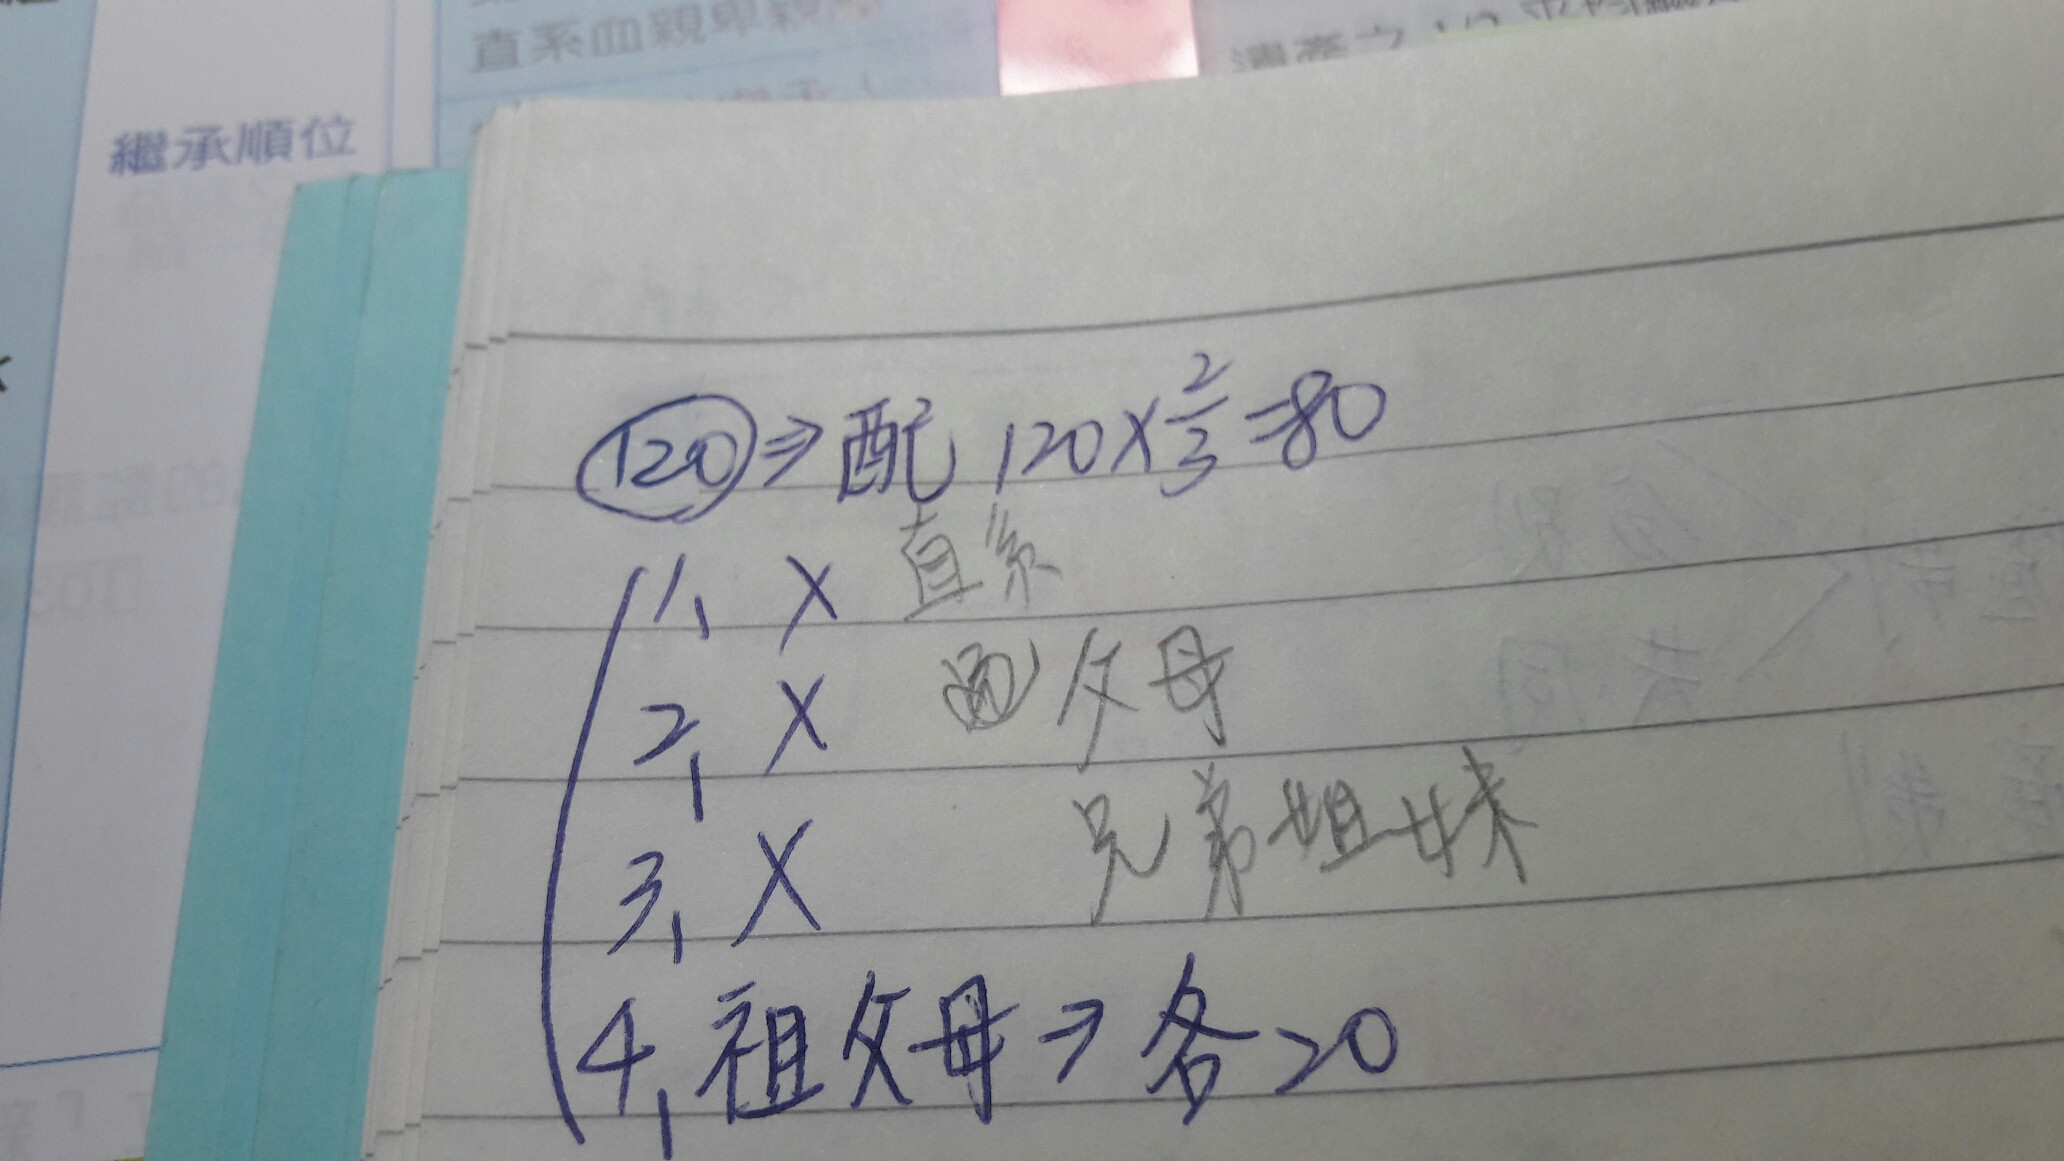 直系血親卑親屬
遺產之1/2
繼承順位
120 ⇒ 配 120×2/3=80
1, X 直系
2, X 父母
3, X 兄弟姐妹
4, 祖父母 ⇒ 各20